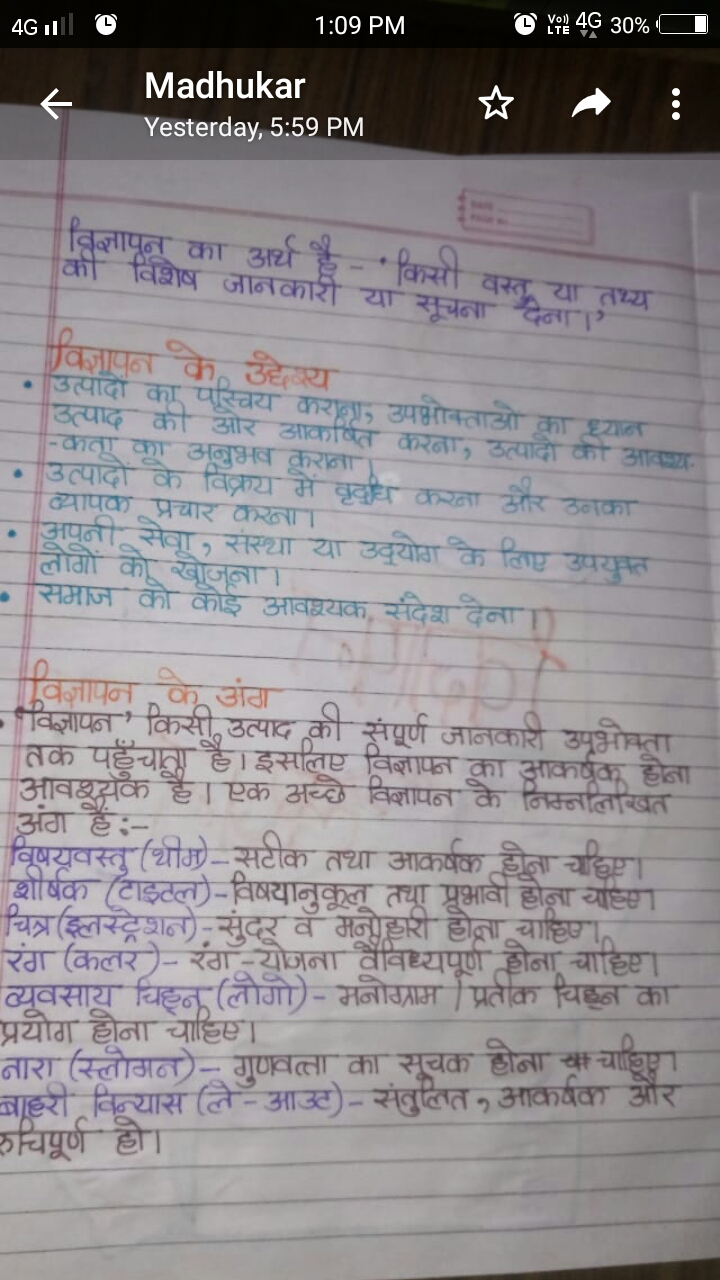 4G 1:09 PM Vo)) LTE 4G 30%
Madhukar
Yesterday, 5:59 PM
DATE
PAGE No.
विज्ञापन का अर्थ है - 'किसी वस्तु या तथ्य
की विशेष जानकारी या सूचना देना।'
विज्ञापन के उद्देश्य
• उत्पादों का परिचय कराना, उपभोक्ताओ का ध्यान
उत्पाद की ओर आकर्षित करना, उत्पादों की आवश्य-
-कता का अनुभव कराना।
• उत्पादों के विक्रय में वृद्धि करना और उनका
व्यापक प्रचार करना।
• अपनी सेवा, संस्था या उद्योग के लिए उपयुक्त
लोगों को खोजना।
• समाज को कोई आवश्यक संदेश देना।
विज्ञापन के अंग
• 'विज्ञापन' किसी उत्पाद की संपूर्ण जानकारी उपभोक्ता
तक पहुँचाता है। इसलिए विज्ञापन का आकर्षक होना
आवश्यक है। एक अच्छे विज्ञापन के निम्नलिखित
अंग हैं:-
विषयवस्तु (थीम)- सटीक तथा आकर्षक होना चहिए।
शीर्षक (टाइटल)- विषयानुकूल तथा प्रभावी होना चहिए।
चित्र (इलस्ट्रेशन)- सुंदर व मनोहारी होना चाहिए।
रंग (कलर)- रंग-योजना वैविध्यपूर्ण होना चाहिए।
व्यवसाय चिह्न (लोगो)- मनोग्राम / प्रतीक चिह्न का
प्रयोग होना चाहिए।
नारा (स्लोगन)- गुणवत्ता का सूचक होना चाहिए।
बाहरी विन्यास (ले-आउट)- संतुलित, आकर्षक और
रुचिपूर्ण हो।